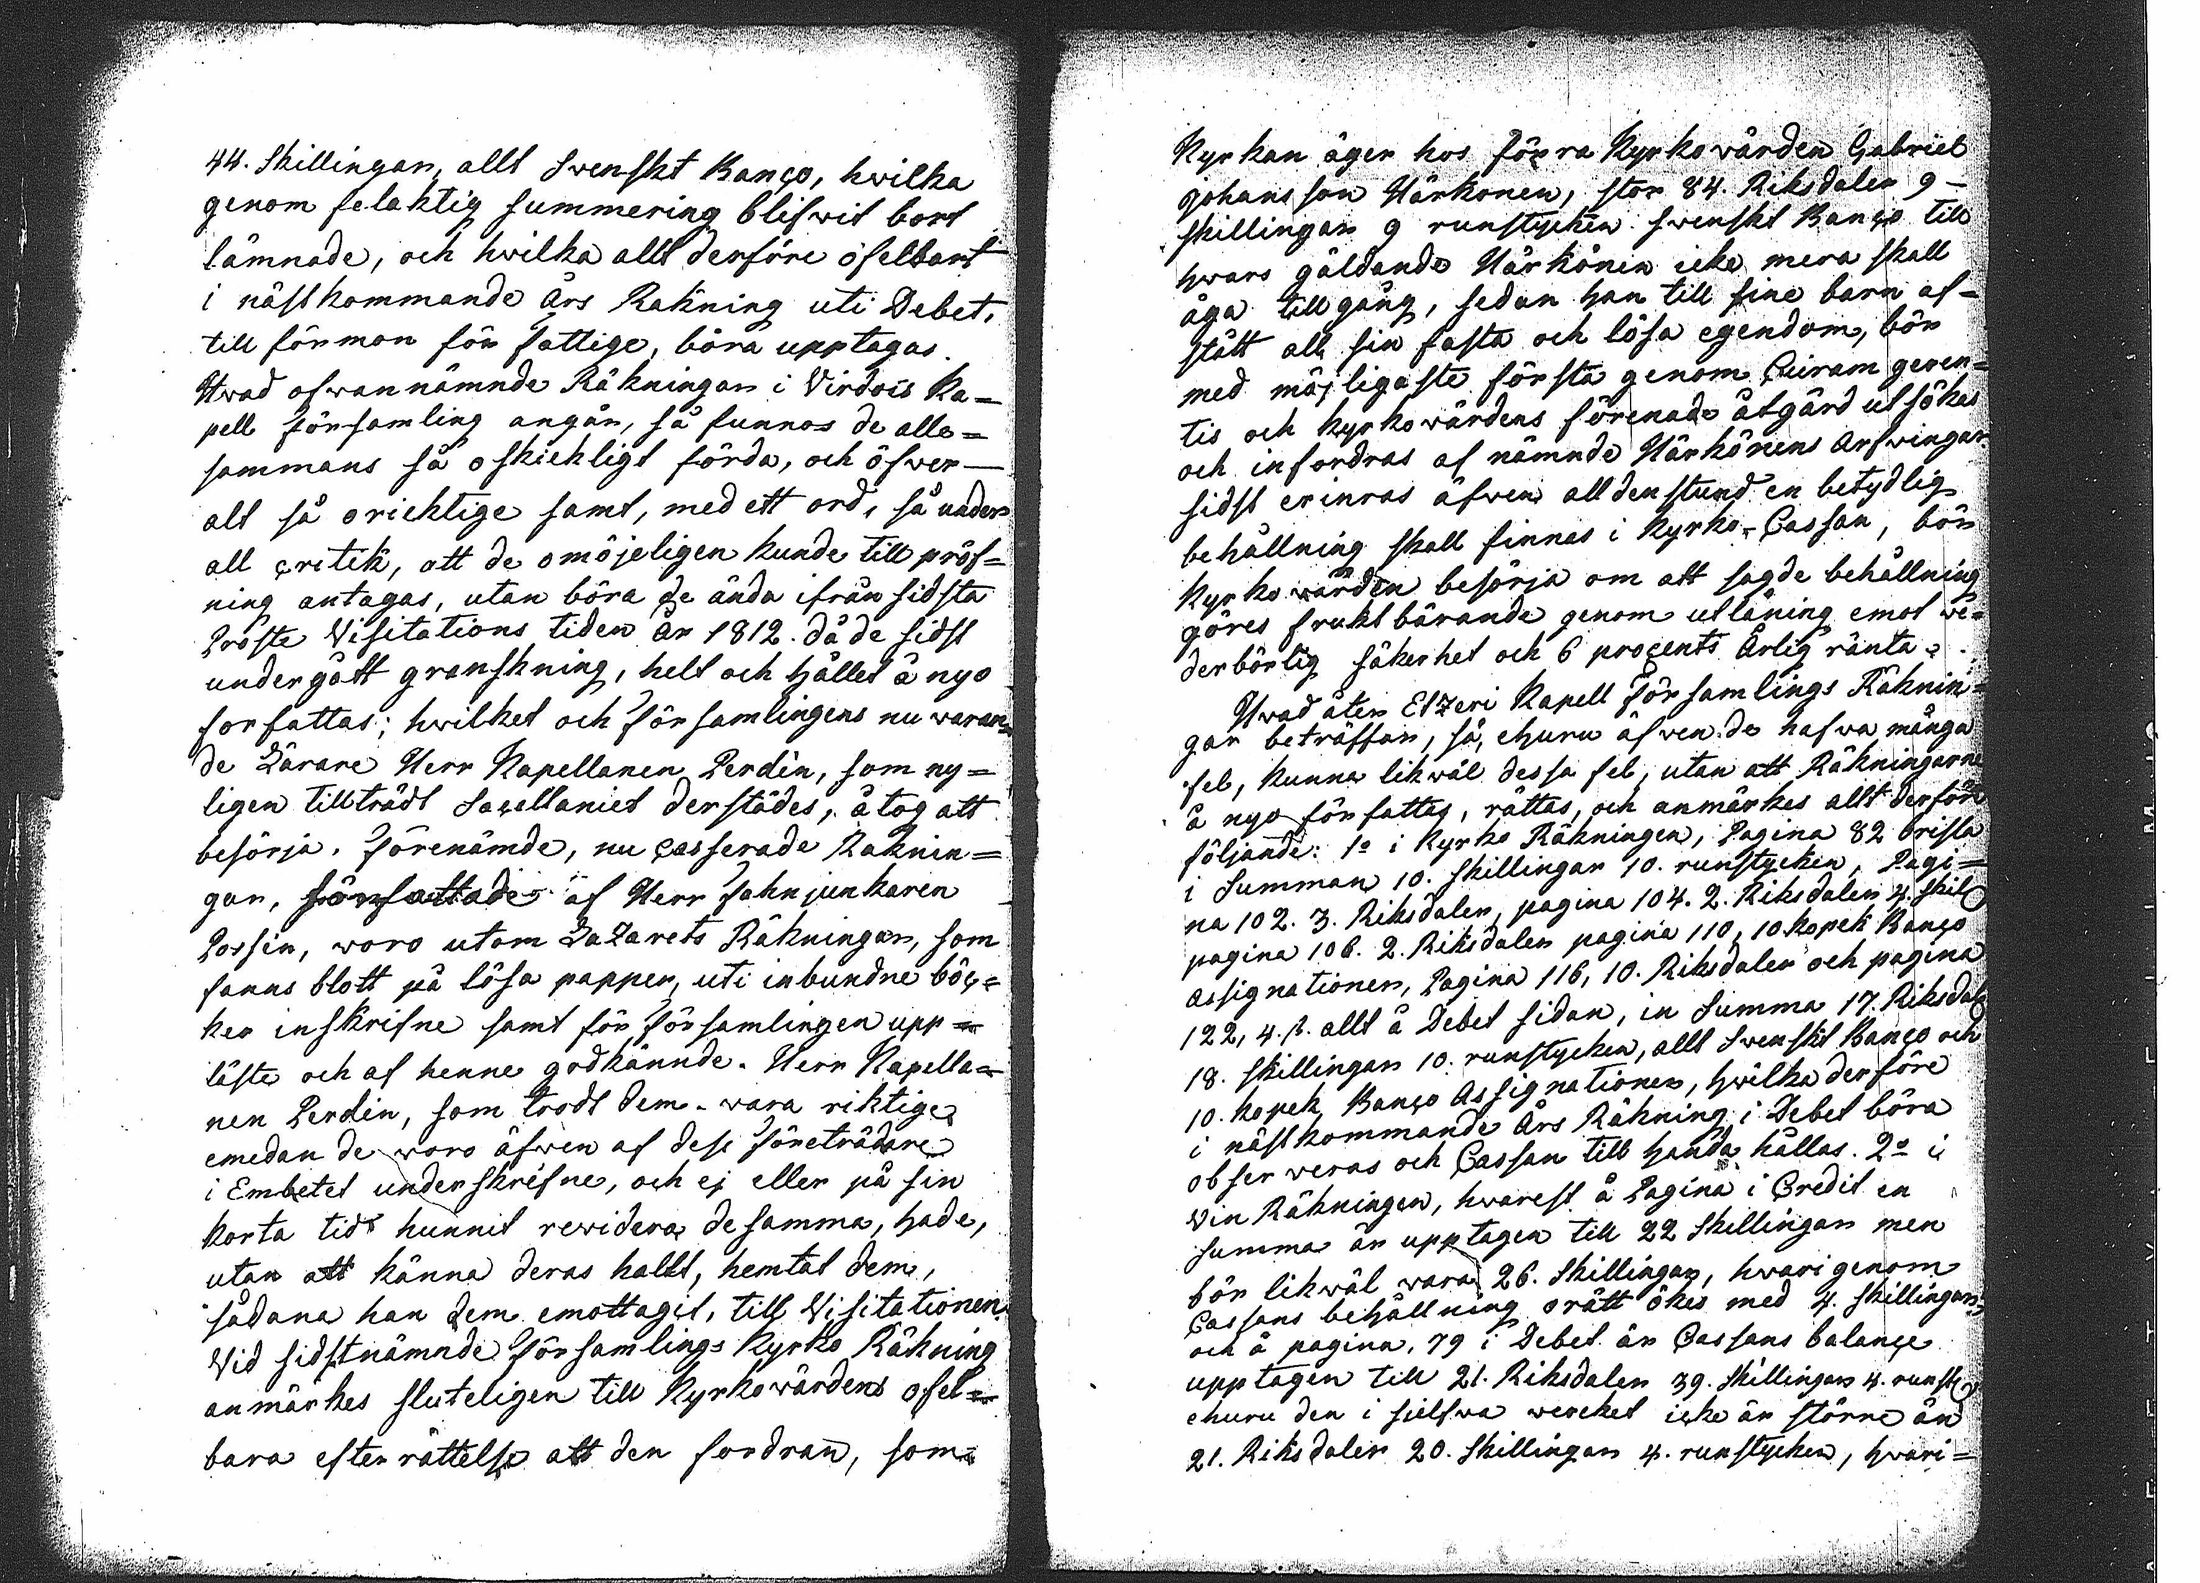 44. Skillingar, allt Swenskt Banco, hwilka
genom felaktig summering blifwit bort
lämnade, och hwilka allt derföre ofelbart
i nästkommande Års Räkning uti Debet,
till förmon för fattige, böra upptagas.
Hwad ofwannämnde Räkningar i Virdois Ka=
pell församling angår, så funnos de alle=
sammans så oskickligt förda, och öfwer=
alt så oricktige samt, med ett ord, så under
all critik, att de omöjeligen kunde till pröf=
ning antagas, utan böra de ända ifrån sidsta
Proste Visitations tiden År 1812. då de sidst
undergått granskning, helt och hållet å nyo
forfattas; hwilket och församlingens nu waran=
de Lärare Herr Kapellanen Perdén, som ny=
ligen tillträdt Sacellaniet derstädes, åtog att
besörja. Förenämde, nu casserade Räknin=
gar, författade af Herr Fahnjunkaren
Possén, woro utom Lazarets Räkningar, som
fanns blott på lösa papper, uti inbundne böc=
ker inskrifne samt för församlingen upp=
läste och af henne godkännde. Herr Kapella=
nen Perdén, som trodt dem wara riktige
emedan de woro äfwen af dess företrädare
i Embetet underskrifne, och ej eller på sin
korta tid hunnit rewidera desamma, hade,
utan att känna deras hallt, hemtat dem,
sådana han dem emottagit, till Visitationen.
Vid sidstnämnde församlings Kyrko Räkning
anmärkes sluteligen till Kyrkowärdens ofel=
bara efterrättelse att den fordran, som
Kyrkan äger hos förra Kyrkowärden Gabriel
Johansson Härkönen, stor 84. Riksdaler 9
skillingar 9 runstycken Swenskt Banco till
hwars gäldande Härkönen icke mera skall
äga tillgång, sedan han till sine barn af=
stått all sin fasta och lösa egendom, bör
med möjligaste första genom Curam geren=
tis och Kyrkowärdens förenade åtgärd utsökas
och infordras af nämnde Härkönens Arfwingar
sidst erinras äfwen alldenstund en betydlig
behållning skall finnas i Kyrko-Cassan, bör
Kyrkowärden besörja om att sagde behållning
göres fruktbärande genom utlåning emot we=
derbörlig säkerhet och 6 procents Årlig ränta.
Hwad åter Etzeri Kapell församlings Räknin=
gar beträffar, så, ehuru äfwen de hafwa många
fel, kunna likwäl dessa fel, utan att Räkningarne
å nyo författas, rättas, och anmärkes allt derföre
följande: 1o i Kyrko Räkningen, Pagina 82 brista
i Summan 10. Skillingar 10. runstycken, Pagi=
na 102. 3. Riksdaler, pagina 104. 2. Riksdaler 4. skil
pagina 106. 2. Riksdaler pagina 110, 10 kopek Banco
Assignationer, Pagina 116, 10. Riksdaler och pagina
122, 4. ß. allt å Debet sidan, in Summa 17. Riksdal
18. skillingar 10. runstycken, allt Swenskt Banco och
10. kopek Banco Assignationer, hwilka derföre
i nästkommande Års Räkning i Debet böra
obserweras och Cassan till handa hållas. 2o i
Vin Räkningen, hwarest å Pagina i Credit en
summa är upptagen till 22 Skillingar men
bör likwäl wara 26. Skillingar, hwarigenom
Cassans behållning orätt ökes med 4. skillingar;
och å pagina. 79 i Debet är Cassans balance
upptagen till 21. Riksdaler 39. Skillingar 4. runst
ehuru den i sielfwa wercket icke är större än
21. Riksdaler 20. Skillingar 4. runstycken, hwari=